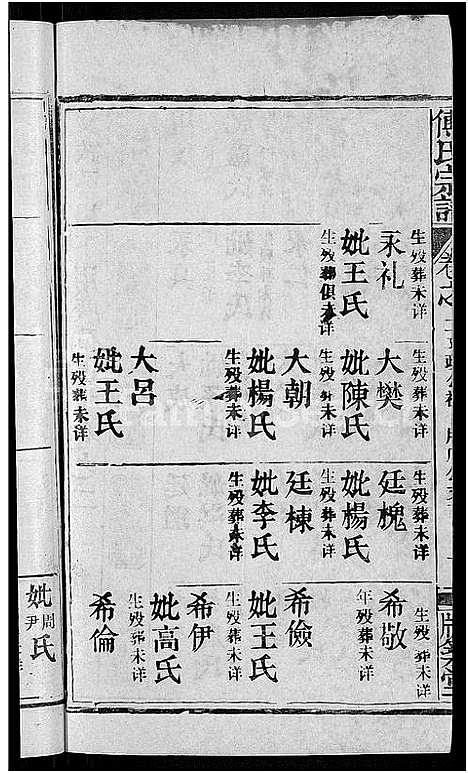 傅氏宗譜
卷
生殁葬未详
永礼
妣王氏
生殁葬俱未详
生殁葬未详
大樊
妣陳氏
生殁葬未详
大朝
妣楊氏
生殁葬未详
大呂
妣王氏
生殁葬未详
生殁葬未详
廷槐
妣楊氏
生殁葬未详
廷棟
妣李氏
生殁葬未详
生殁葬未详
希敬
年殁葬未详
希儉
妣王氏
生殁葬未详
希伊
妣高氏
生殁葬未详
希倫
妣周尹氏